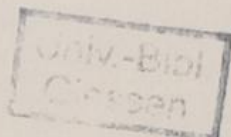 Univ.-Bibl
Giessen